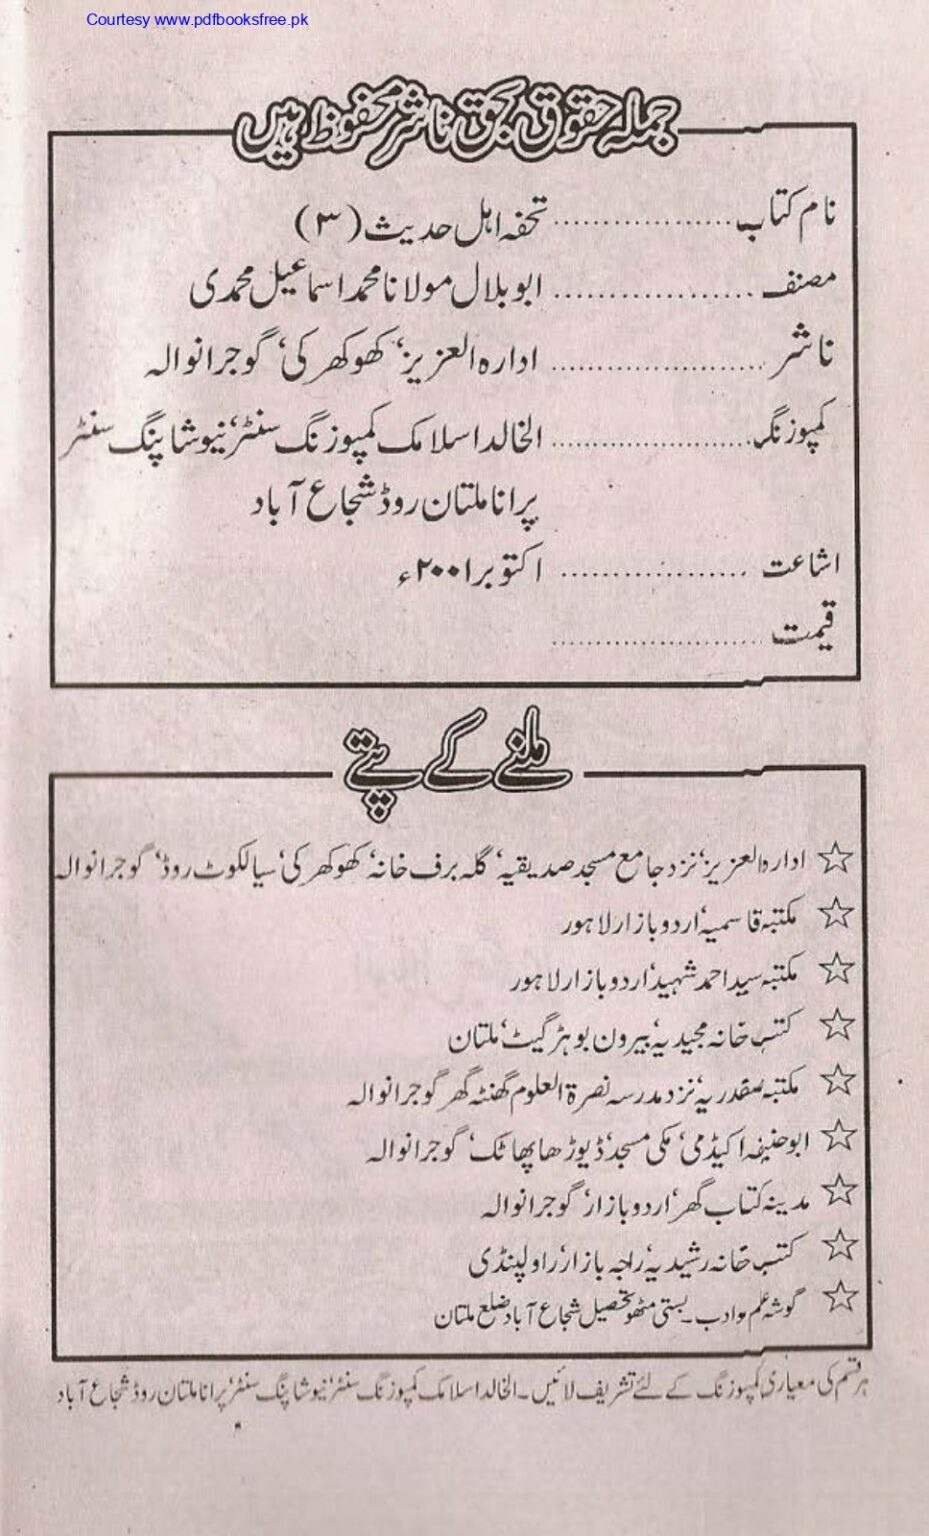 Courtesy www.pdfbooksfree.pk
جملہ حقوق بحق ناشر محفوظ ہیں
نام کتاب ................. تحفہ اہل حدیث (۳)
مصنف .................. ابو بلال مولانا محمد اسماعیل محمدی
ناشر .................... ادارہ العزیز‘ کھوکھر کی‘ گوجرانوالہ
کمپوزنگ ................... الخالد اسلامک کمپوزنگ سنٹر‘ نیو شاپنگ سنٹر
پرانا ملتان روڈ شجاع آباد
اشاعت ................. اکتوبر ۲۰۰۱ء
قیمت ....................
ملنے کے پتے
☆ ادارہ العزیز‘ نزد جامع مسجد صدیقیہ‘ گلہ برف خانہ‘ کھوکھر کی‘ سیالکوٹ روڈ‘ گوجرانوالہ
☆ مکتبہ قاسمیہ‘ اردو بازار لاہور
☆ مکتبہ سید احمد شہید‘ اردو بازار لاہور
☆ کتب خانہ مجیدیہ‘ بیرون بوہڑ گیٹ‘ ملتان
☆ مکتبہ صفدریہ‘ نزد مدرسہ نصرۃ العلوم گھنٹہ گھر گوجرانوالہ
☆ ابو حنیفہ اکیڈمی‘ مکی مسجد‘ ڈیوڑھا پھاٹک‘ گوجرانوالہ
☆ مدینہ کتاب گھر‘ اردو بازار‘ گوجرانوالہ
☆ کتب خانہ رشیدیہ‘ راجہ بازار‘ راولپنڈی
☆ گوشہ علم و ادب۔ بستی مٹھو تحصیل شجاع آباد ضلع ملتان
ہر قسم کی معیاری کمپوزنگ کے لئے تشریف لائیں۔ الخالد اسلامک کمپوزنگ سنٹر‘ نیو شاپنگ سنٹر‘ پرانا ملتان روڈ شجاع آباد